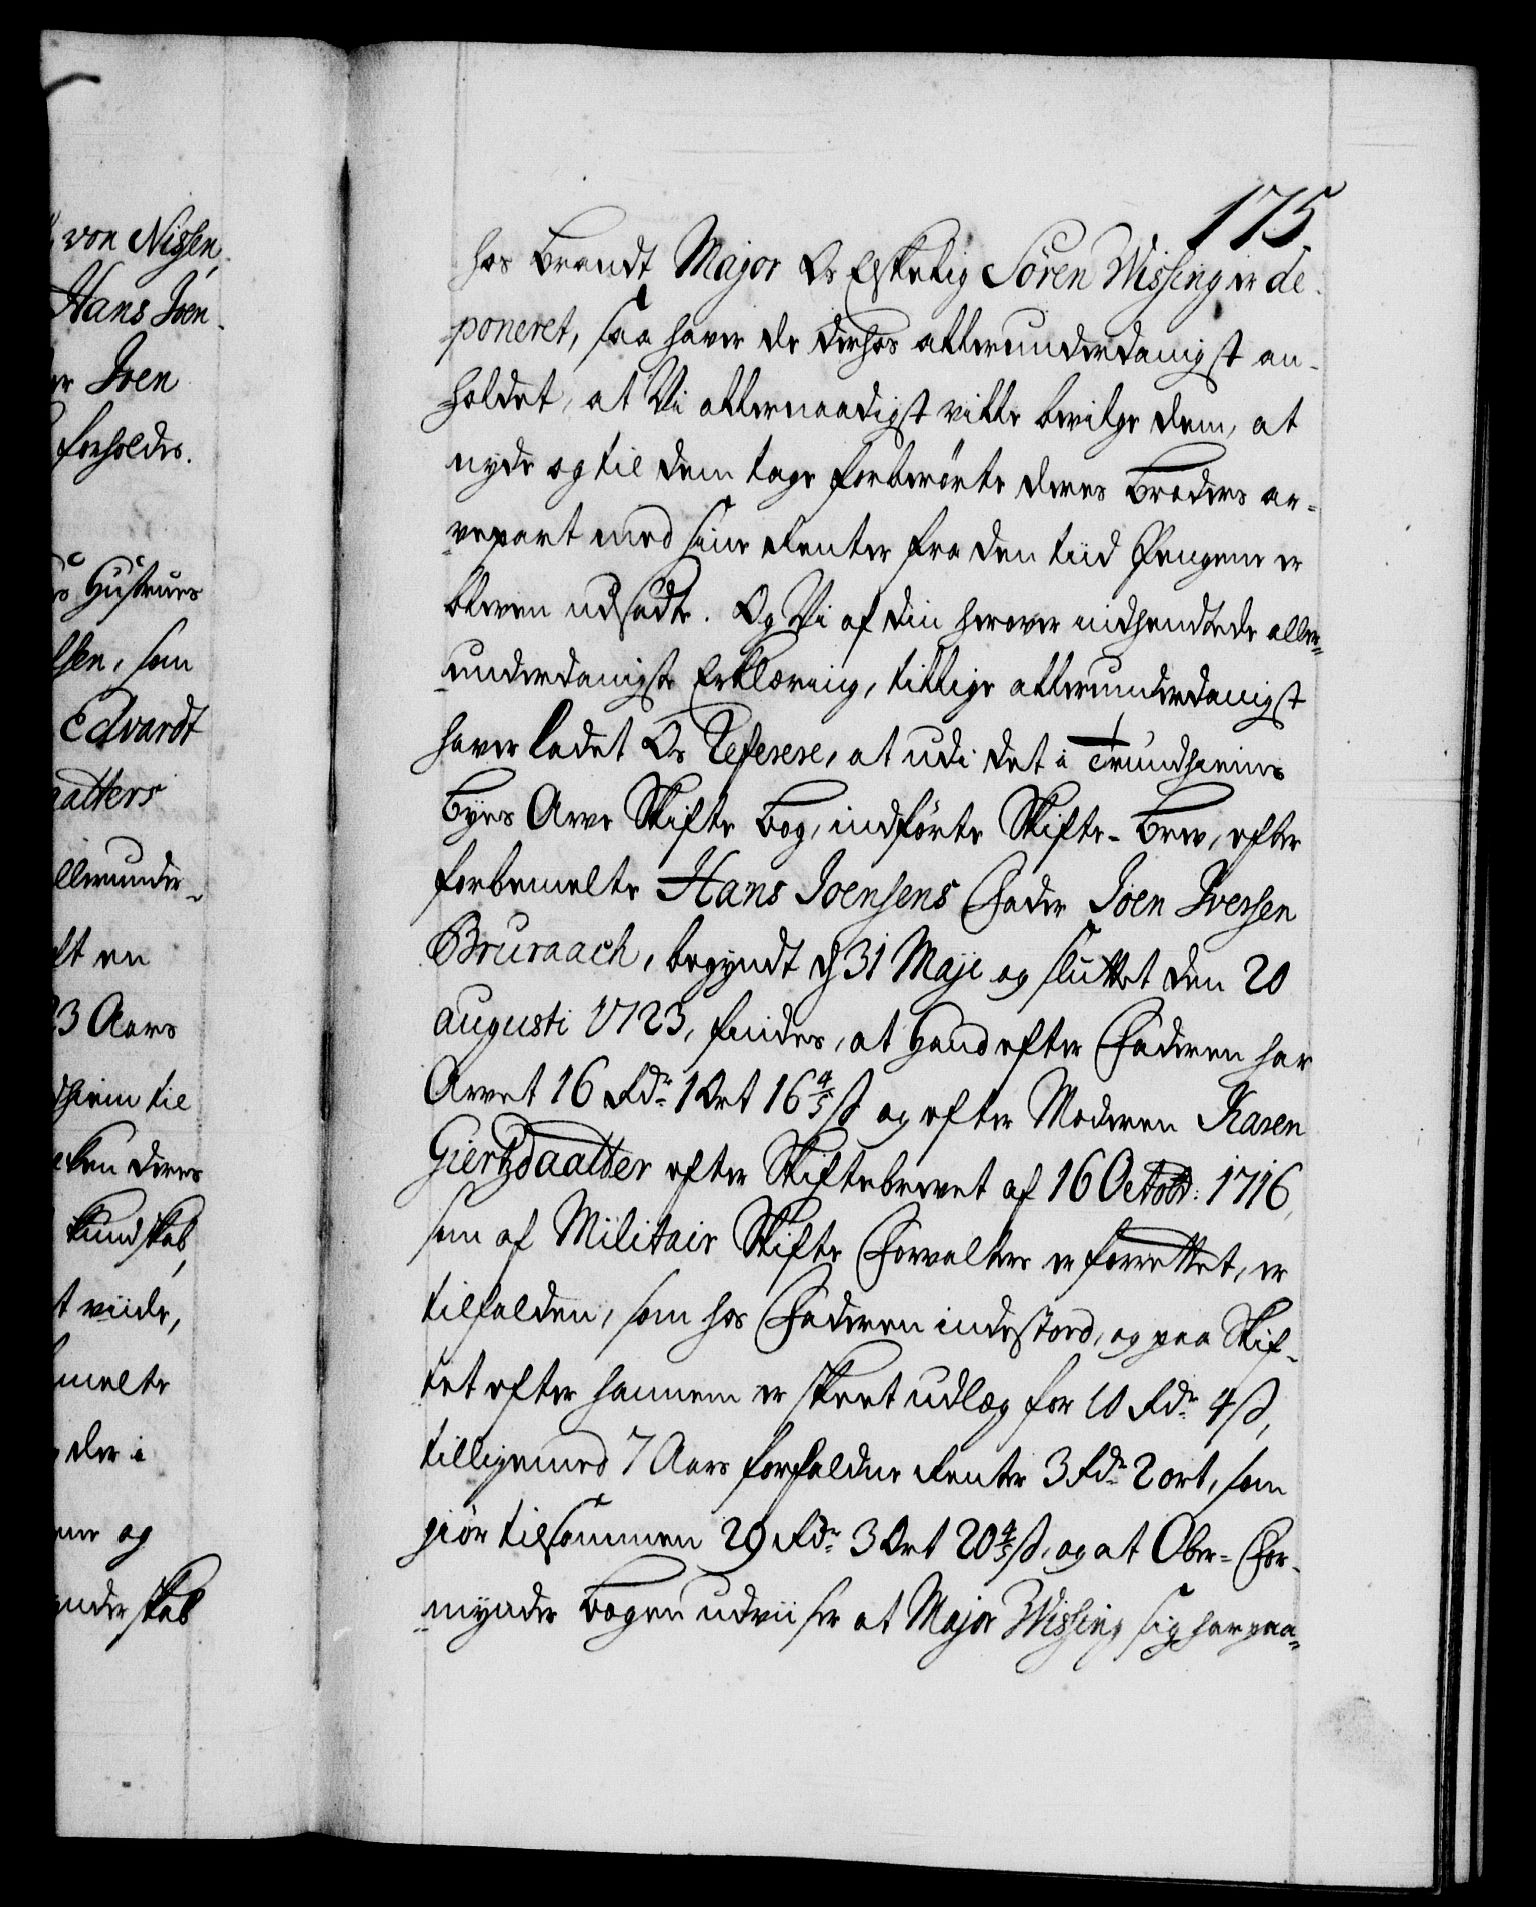 von Nissen,
Hans Joen-
er Joen
forholdes.
Hustrues
lsen, som
Edvardt
aatters
llerunder-
lt en
23 Aars
dhiem til
deres
Kundskab,
t viide,
melte
der i
og
skab
175.
hos Brandt Major Os Elskelig Sören Wissing er de-
poneret, saa haver de derhos allerunderdanigst an-
holdet, at Vi allernaadigst ville bevilge dem, at
nyde og til dem tage forberörte deres Broders ar-
vepart med sine Renter fra den tiid Pengene er
bleven udsadte. Og Vi af din herover indsendte aller-
underdanigste Erklæring, tillige allerunderdanigst
haver ladet Os Referere, at udi det i Trundhiems
Byes Arve Skifte Bog, indförte Skifte-Brev, efter
forbemelte Hans Joensens Fader Joen Iversen
Bruraach, begyndt d 31 Maji og sluttet den 20
augusti 1723, findes, at Hand efter Faderen har
Arvet 16 Rdr 1 Ort 16 4/5 ß og efter Moderen Karen
Giertzdaatter efter Skiftebrevet af 16 Octobr: 1716,
som af Militair Skifte Forvalter er forrettet, er
tilfalden, som hos Faderen indestoed, og paa Skif-
tet efter hannem er skeet udlæg for 10 Rdr 4 ß,
tilligemed 7 Aars forfaldne Renter 3 Rdr 2 ort, som
giör tilsammen 29 Rdr 3 Ort 20 4/5 ß, og at Ober-For-
mynder Bogen udviiser at Major Wissing sig har paa-